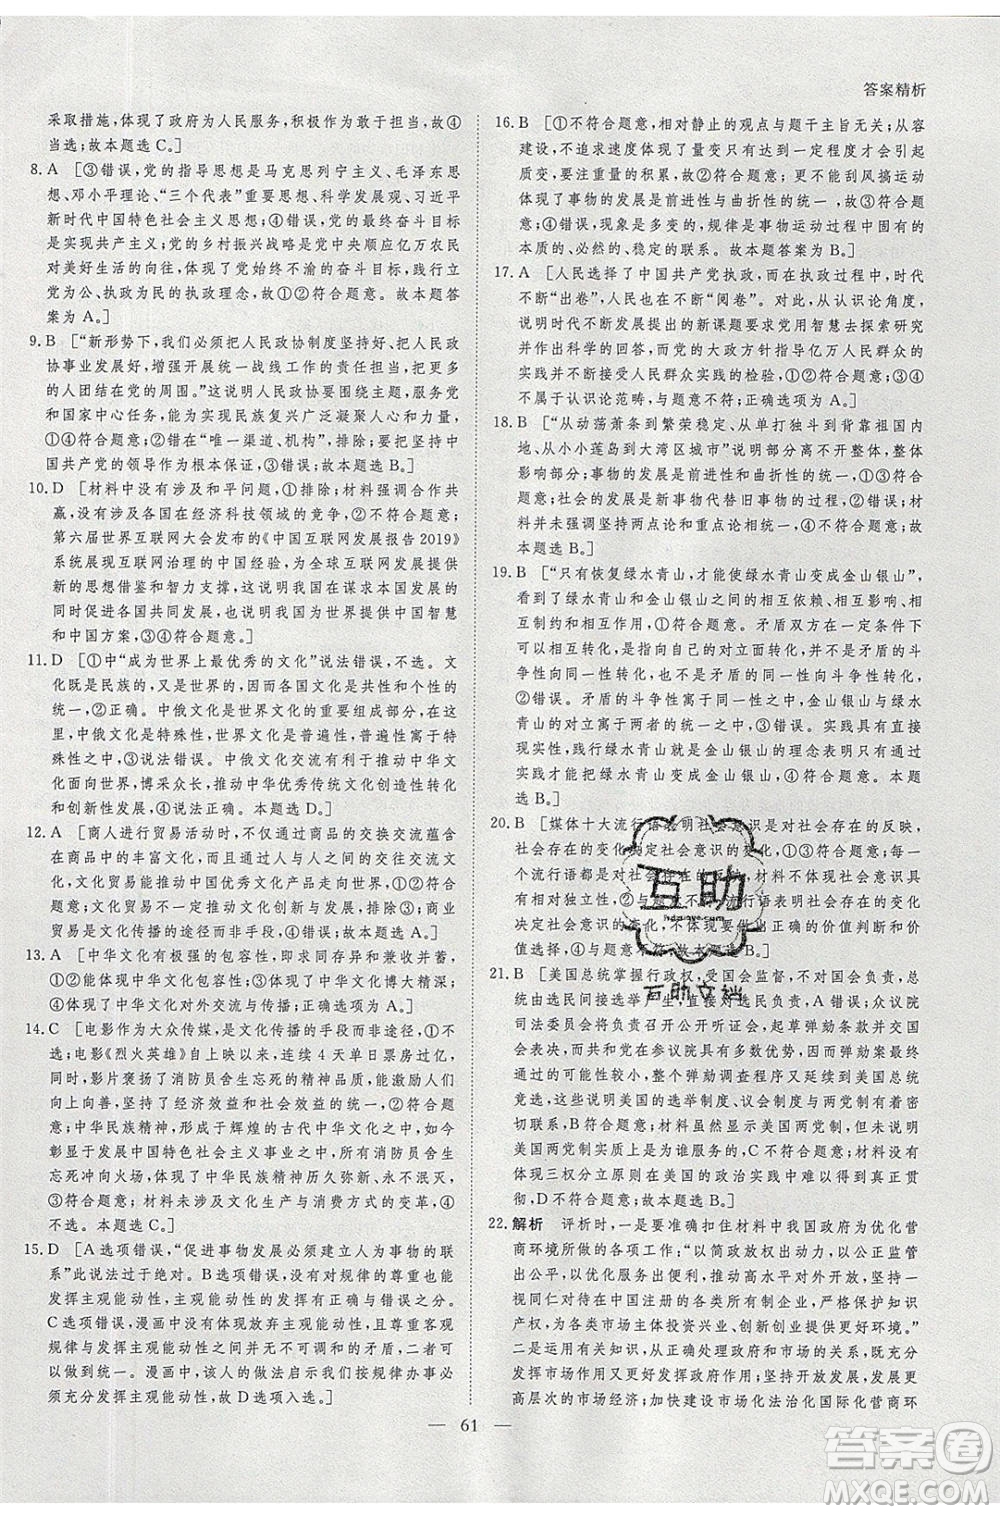 答案精析
采取措施,体现了政府为人民服务,积极作为敢于担当,故④
当选;故本题选C。]
8. A [③错误,党的指导思想是马克思列宁主义、毛泽东思
想、邓小平理论、“三个代表”重要思想、科学发展观、习近平
新时代中国特色社会主义思想;④错误,党的最终奋斗目标
是实现共产主义;党的乡村振兴战略是党中央顺应亿万农民
对美好生活的向往,体现了党始终不渝的奋斗目标,践行立
党为公、执政为民的执政理念,①②符合题意。故本题答
案为A。]
9. B [“新形势下,我们必须把人民政协制度坚持好、把人民政
协事业发展好,增强开展统一战线工作的责任担当,把更多
的人团结在党的周围。”这说明人民政协要围绕主题,服务党
和国家中心任务,能为实现民族复兴广泛凝聚人心和力量,
①④符合题意;②错在“唯一渠道、机构”,排除;要把坚持中
国共产党的领导作为根本保证,③错误;故本题选B。]
10. D [材料中没有涉及和平问题,①排除;材料强调合作共
赢,没有涉及各国在经济科技领域的竞争,②不符合题意。
第六届世界互联网大会发布的《中国互联网发展报告2019》
系统展现互联网治理的中国经验,为全球互联网发展提供
新的思想借鉴和智力支撑,说明我国在谋求本国发展的
同时促进各国共同发展,也说明我国为世界提供中国智慧
和中国方案,③④符合题意。故本题选D。]
11. D [①中“成为世界上最优秀的文化”说法错误,不选。文
化既是民族的,又是世界的,各国文化是共性和个性的统
一,②正确。中俄文化是世界文化的重要组成部分,中俄文
化是特殊性,世界文化是普遍性,普遍性寓于特殊性之中,
③说法错误。中俄文化交流互鉴,推动中华文化
更好走向世界,博采众长,推动中华优秀传统文化创造性转化
和创新性发展,④说法正确。本题选D。]
12. A [商人进行贸易活动时,不仅通过商品的交换交流蕴含
在商品中的丰富文化,而且通过人与人之间的沟通交流文
化,文化贸易能推动中国优秀文化产品走向世界,①③符合
题意;文化发展的实质在于文化创新与发展,②错误;商业
贸易是文化传播的途径而非手段,④错误。故本题选A。]
13. A [中华文化有极强的包容性,即求同存异和兼收并蓄,
①体现了中华文化包容性;③体现了中华文化博大精深;
④体现了中华文化对外交流与传播;②材料不体现;故本题
选A。]
14. C [电影作为大众传媒,是文化传播的手段而非途径,①
不选;电影《烈火英雄》在国内连续4天单日票房占比第一,
同时,影片褒扬了消防员舍生忘死的精神品质,能激励人民
奋发向上,坚持了经济效益和社会效益的统一,②符合题
意;中华民族创造了辉煌的古代中华文化,中华文化在今
天彰显于中国特色社会主义事业之中,中国消防员舍生忘死的
精神,体现了中华民族精神历久弥新、永不磨灭,
③符合题意;材料未涉及文化生产与消费方式的变革,④
不选。本题选C。]
15. D [A选项错误,“促进事物发展必须建立人为事物的联
系”此说法过于绝对。B选项错误,没有对规律的尊重也能
发挥主观能动性,主观能动性的发挥有正确与错误之分。
C选项错误,漫画中的情境没有体现放弃主观能动性,尊重
规律与发挥主观能动性二者是辩证统一的,尊重规律
与发挥主观能动性。漫画中,该人的做法启示我们做事必
须充分发挥主观能动性,故D选项入选。]
16. B [①不符合题意,相对静止的观点与题干主旨无关;从容
建设,不追求速成,体现了量变达到一定程度才会引起
质变,要重视量的积累,故②符合题意;多次刮风搞运动
体现了事物的发展是前进性与曲折性的统一,故③符合
题意;④错误,现象是多变的,规律是事物运动过程中固有的
本质的、必然的、稳定的联系。故本题答案为B。]
17. A [人民选择了中国共产党执政,而在执政过程中,时代
不断“出卷”,人民也在不断“阅卷”。对此,从认识论角度,
说明时代发展提出的新课题要求党用智慧去探索研究并
作出科学的回答,而党的大政方针指导人民群众的
实践并不断接受人民群众实践的检验,①②符合题意;③④
不属于认识论范畴,均不符合题意。正确选项为A。]
18. B [“从动荡萧条到繁荣稳定、从单打独斗到背靠祖国内
地、从小小莲岛到大湾区城市”说明部分离不开整体,整体
影响部分;事物的发展是前进性和曲折性的统一,①④符合
题意;社会的发展是新事物代替旧事物的过程,②错误;材
料并未强调坚持两点论和重点论的统一,③不合题意;故
本题选B。]
19. B [“只有恢复绿水青山,才能使绿水青山变成金山银山”,
看到了绿水青山和金山银山之间的相互依赖、相互贯通
和相互作用,①符合题意。矛盾双方在一定条件下可
以相互转化,实现由对立面转化,而不是矛盾的斗
争性向同一性转化,②错误。矛盾的斗争性寓于同一性之中,金山银山与绿水
青山的对立寓于两者的统一之中,③错误。实践具有直接
现实性,践行绿水青山就是金山银山的理念表明只有通过
实践才能把绿水青山变成金山银山,④符合题意。本题
选B。]
20. B [媒体十大流行语表明社会意识是对社会存在的反映,
社会存在的变化决定社会意识的变化,①④符合题意;每一
个流行语都是社会存在的反映,②错误;材料不体现社会意识具有
相对独立性,③不符合题意。
故本题选B。]
21. B [美国总统掌握行政权,受国会监督,不对国会负责,总
统由选民间接选举产生,直接对选民负责,A错误;众议院
司法委员会将负责召开公开听证会,起草弹劾条款并由国
会表决,而共和党在参议院拥有多数席位,因而弹劾成功的
可能性较小,但整个弹劾调查程序又将影响美国总统
竞选,这些说明美国的选举制度、议会制度与两党制有着密
切联系,B符合题意;材料尽管涉及美国两党制,但没有
体现美国两党制的本质是为谁服务的,C不选;材料没有
体现三权分立原则在美国的政治实践中难以真正贯彻到
底,D不符合题意;故本题选B。]
22. 解析 评析时,一是要准确扣住材料中我国政府为优化营
商环境所做的各项工作;“以简政放权放出活力,以公正监管
管出公平,以优化服务出便利,推动高水平对外开放,坚持一
视同仁对待在中国注册的各类所有制企业,坚持保护知识产
权,为各类市场主体投资兴业、创新创业营造更好环境。”
二是运用有关知识,从正确处理政府与市场的关系,既充分
发挥市场作用,又更好发挥政府作用,发展更高水平更
高层次的市场经济;加快建设市场化法治化国际化营商环
61
互助
互助文档
答案圈
MXQE.COM